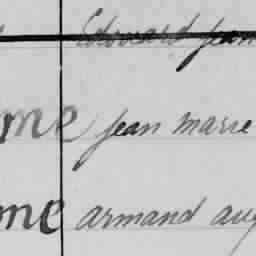 Edouard Jean
me Jean Marie
me armand aug